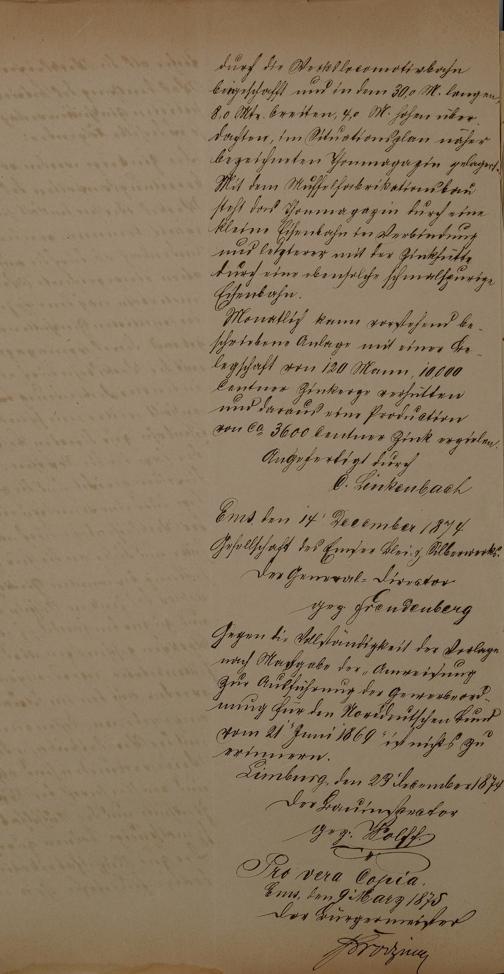 durch die Werkslocomotivbahn
beigeschafft und in dem 30,0 M. langen,
8,0 Mtr. breiten, 4,0 M. hohen über-
dachten, im Situationsplan näher
bezeichneten Thonmagazin gelagert.
Mit dem Muffelfabrikationsbau
steht das Thonmagazin durch eine
kleine Eisenbahn in Verbindung
und letzterer mit der Zinkhütte
durch eine ebensolche schmalspurige
Eisenbahn.
Monatlich kann vorstehend be-
schriebene Anlage mit einer Be-
legschaft von 120 Mann, 10000
Centner Zinkerze verhütten
und daraus eine Production
von ca 3600 Centner Zink erzielen.
Angefertigt durch
C. Linkenbach
Ems, den 14 December 1874
Gesellschaft des Emser Blei & Silberwerks.
Der General-Director
gez Freudenberg
Gegen die Vollständigkeit der Vorlage
nach Maßgabe der "Anweisung
zur Ausführung der Gewerbeord-
nung für den Norddeutschen Bund
vom 21 Juni 1869" ist nichts zu
erinnern.
Limburg, den 23 December 1874
Der Bauinspector
gez: Wolff.
Pro vera Copia.
Ems, den 9 März 1875
Der Bürgermeister